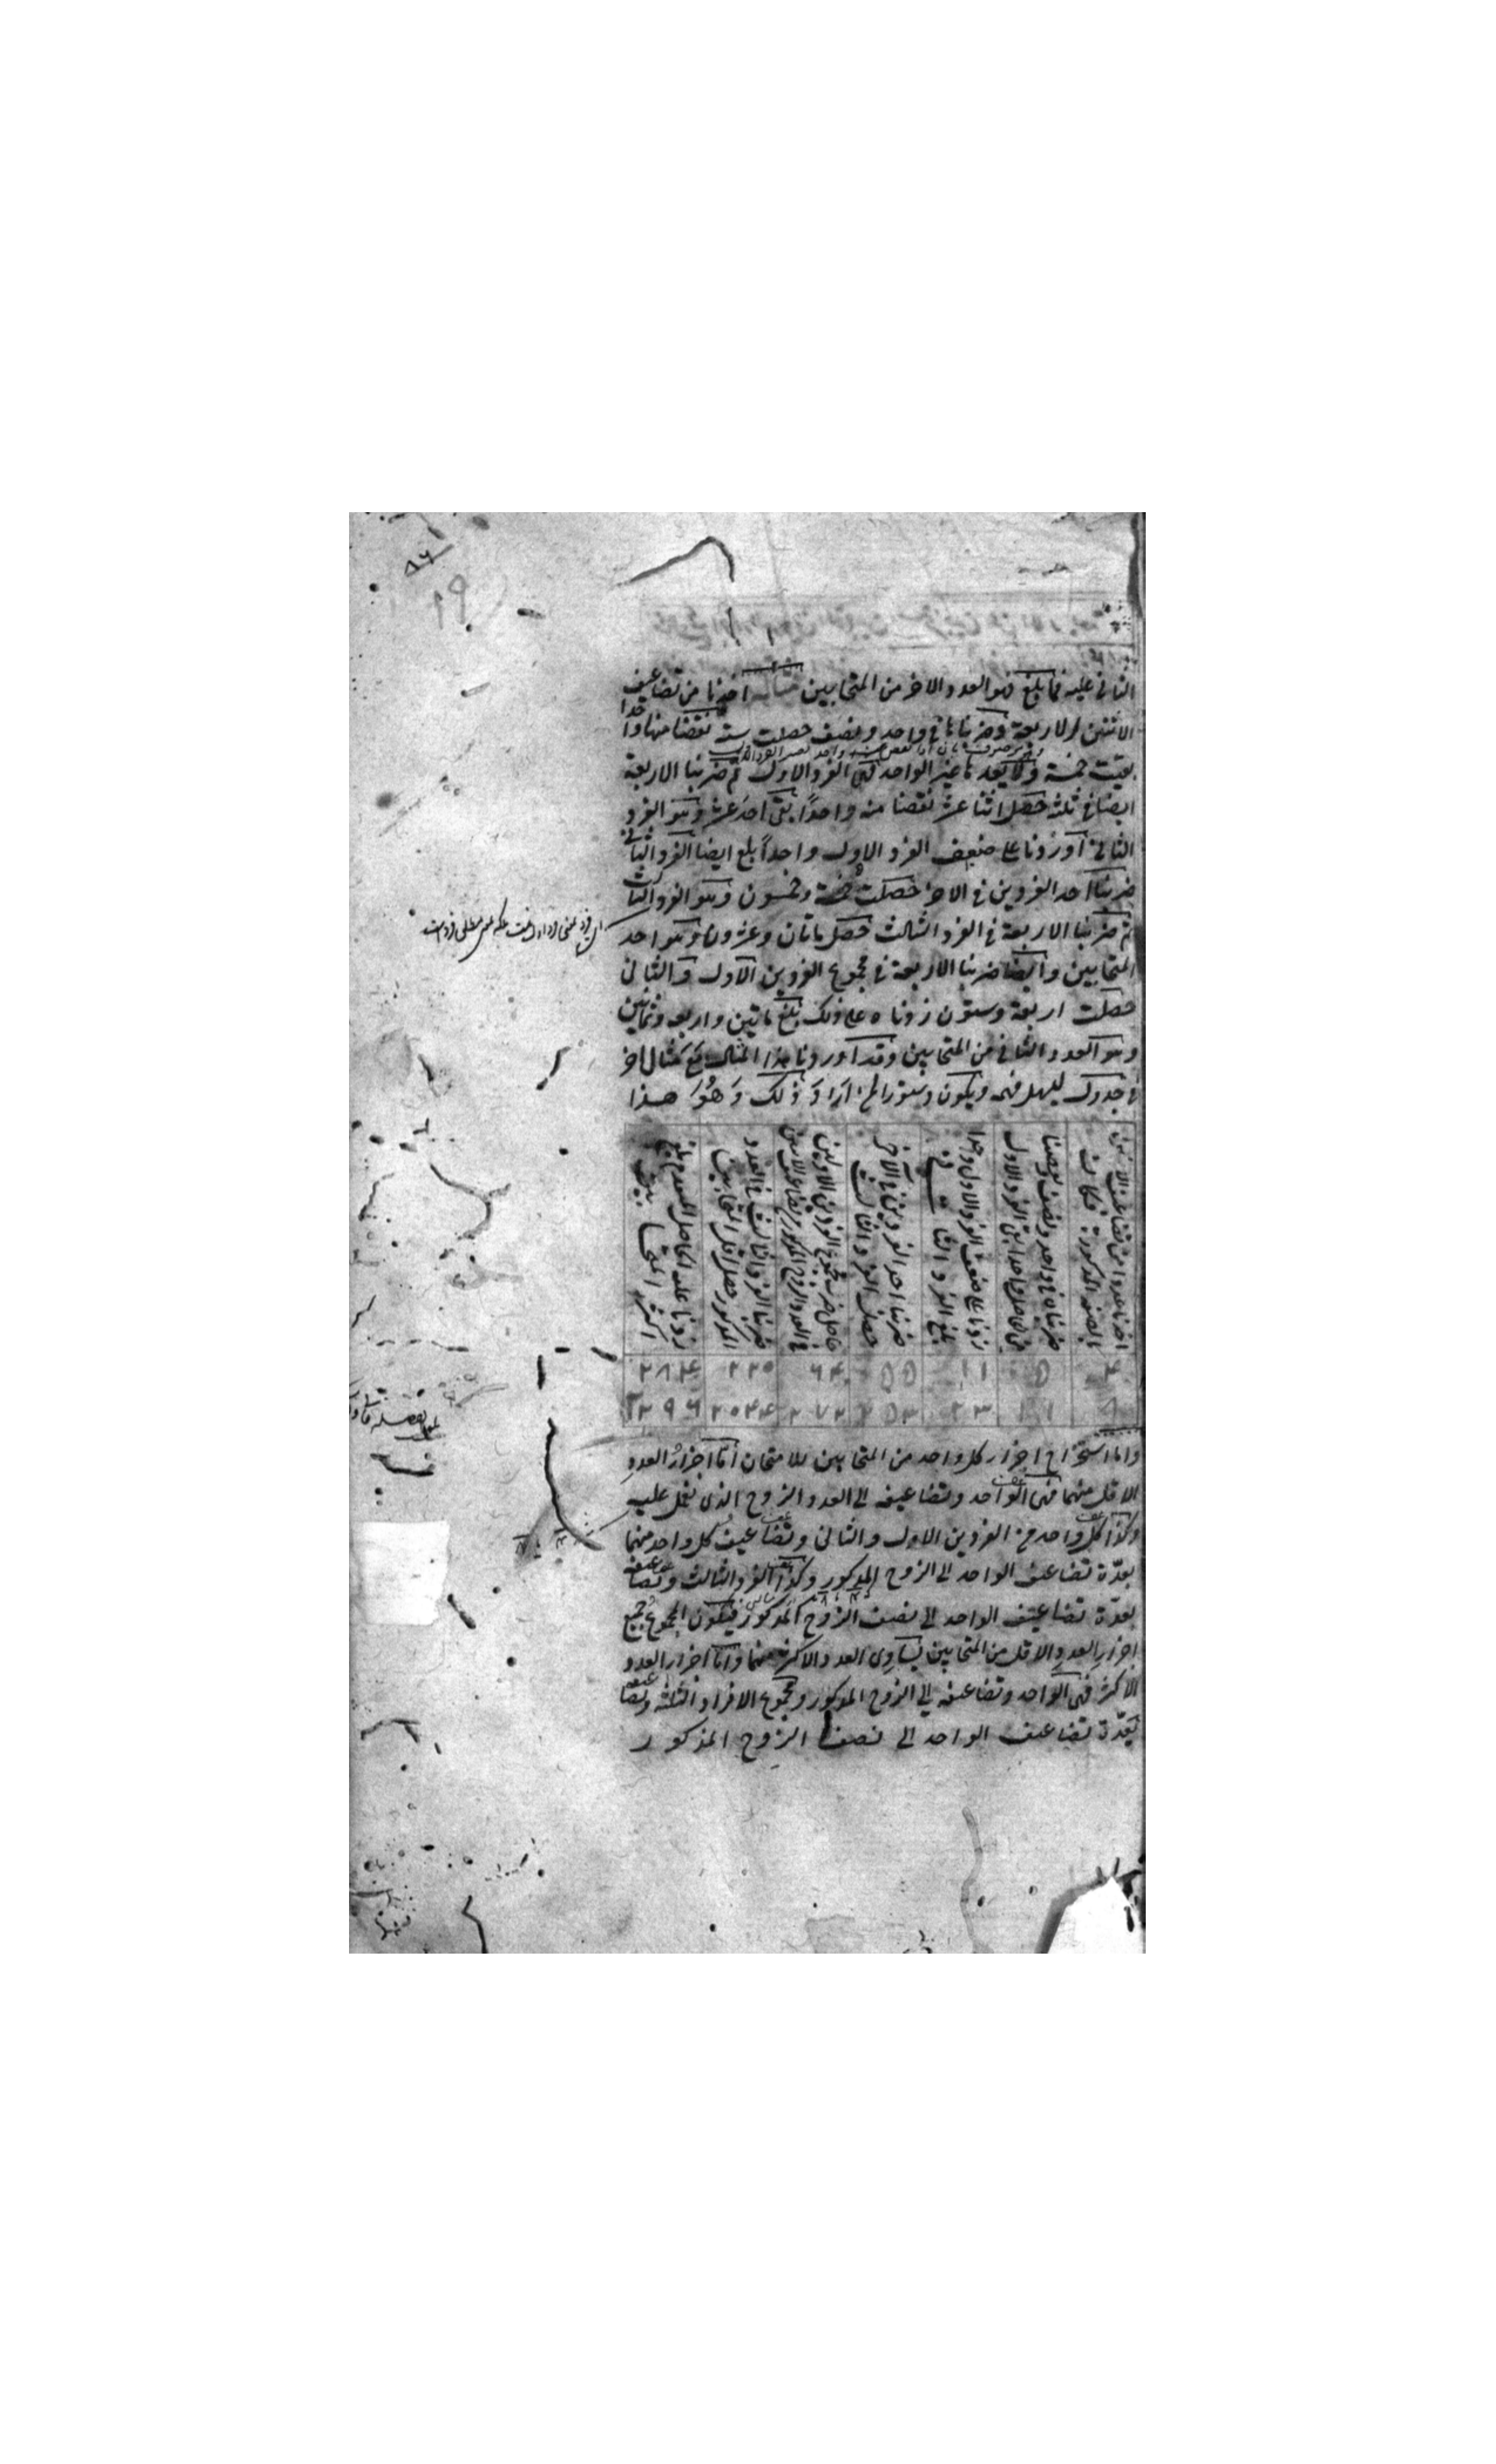 الثانى عليه فما بلغ فهو العدد الاخر من المتحابين مثاله اخذنا من تضاعيف
الاثنين الاربعة وضربناها فى واحد ونصف حصلت ستة نقصنا منها واحدا
بقيت خمسة ولا يعدها غير الواحد فهى الفرد الاول ثم ضربنا الاربعة
ايضا فى ثلثة حصل اثنا عشر نقصنا منه واحدًا بقى احد عشر وهو الفرد
الثانى او زدنا على ضعف الفرد الاول واحداً بلغ ايضا الفرد الثانى
ضربنا احد الفردين فى الاخر حصلت خمسة وخمسون وهو الفرد الثالث
ثم ضربنا الاربعة فى الفرد الثالث حصل ماتان وعشرون وهو احد
المتحابين وايضا ضربنا الاربعة فى مجموع الفردين الاول والثانى
حصلت اربعة وستون زدناه على ذلك بلغ ماتين واربعه وثمانين
وهو العدد الثانى من المتحابين وقد اوردنا هذا المثال مع مثال اخر
فى جدول ليسهل فهمه ويكون دستورا لمن اراد ذلك وَهُوَ هذا
اخذنا عددا من تضاعيف الاثنين بالصفة المذكورة فكانت
ضربناه فى واحد ونصف ونقصنا من الحاصل واحدا بقى الفرد الاول
زدنا على ضعف الفرد الاول واحدا بلغ الفرد الثانى
ضربنا احد الفردين فى الاخر حصل الفرد الثالث
حاصل ضرب مجموع الفردين الاولين فى العدد الزوج المذكور من تضاعيف الاثنين
ضربنا الفرد الثالث فى العدد المذكور حصل اقل المتحابين
زدنا عليه الحاصل المتقدم بلغ اكثر المتحابين
۴ ۵ ۱۱ ۵۵ ۶۴ ۲۲۰ ۲۸۴
۸ ۱۱ ۲۳ ۲۵۳ ۲۷۲ ۲۰۲۴ ۲۲۹۶
واما استخراج اجزاء كل واحد من المتحابين للامتحان أمّا اجزاءُ العددِ
الاقل منهما فهى الواحد وتضاعيفه الى العدد الزوج الذى نعمل عليه
وكذا كل واحد من الفردين الاول والثانى وتضاعيف كل واحد منهما
بعدّة تضاعيف الواحد الى الزوج المذكور وكذا الفرد الثالث وتضاعيفه
بعدّة تضاعيف الواحد الى نصف الزوج المذكور فيكون المجموعُ جميع
اجزاءِ العددِ الاقل من المتحابين يساوى العدد الاكثر منهما واما اجزاء العدد
الاكثر فهى الواحد وتضاعيفه الى الزوج المذكور ومجموع الافراد الثلثة وتضاعيفه
بعدّة تضاعيف الواحد الى نصف الزوج المذكور